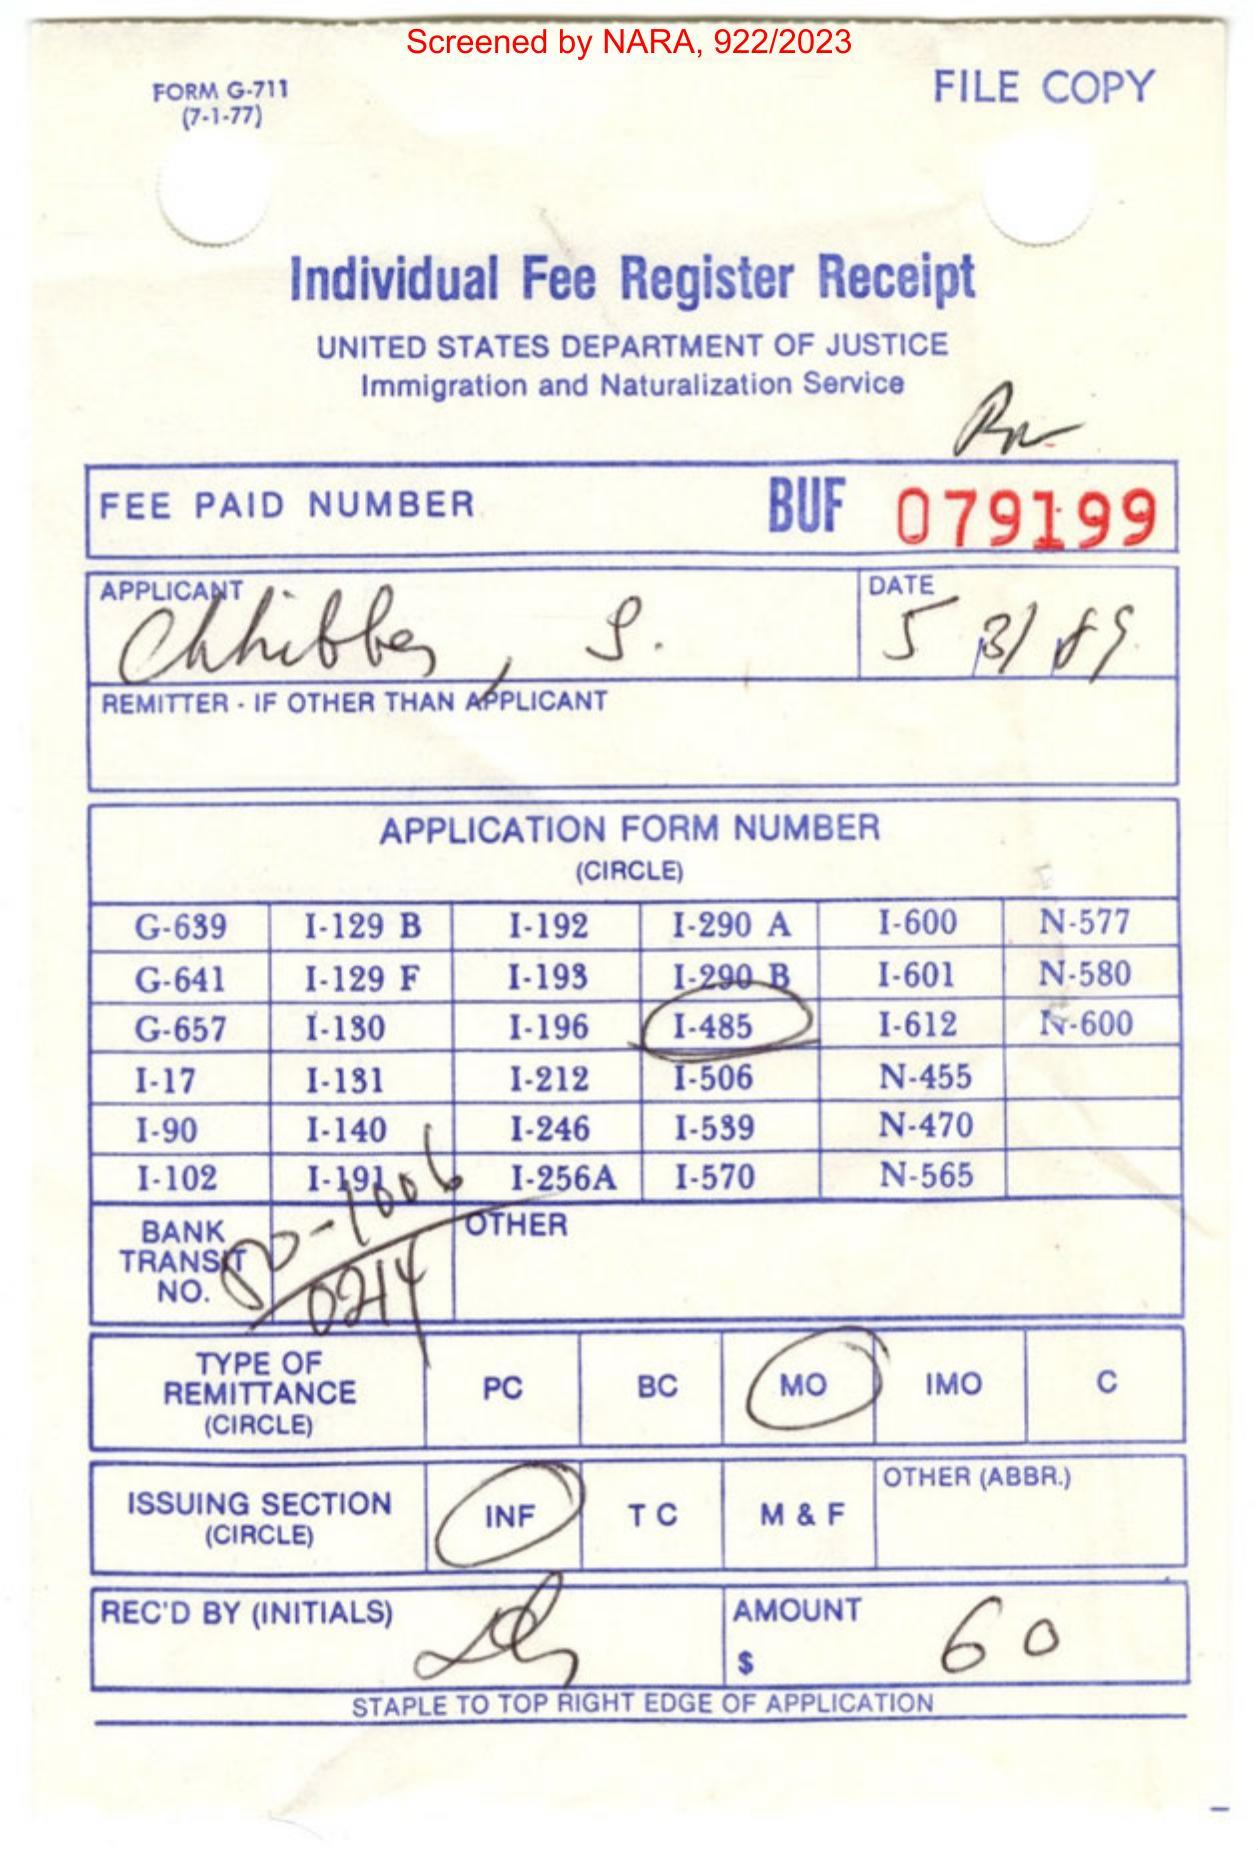 Screened by NARA, 922/2023
FORM G-711
(7-1-77)
FILE COPY
Individual Fee Register Receipt
UNITED STATES DEPARTMENT OF JUSTICE
Immigration and Naturalization Service
FEE PAID NUMBER BUF 079199
APPLICANT
Chhibber, S.
DATE
5 31 89
REMITTER - IF OTHER THAN APPLICANT
APPLICATION FORM NUMBER
(CIRCLE)
G-639 I-129 B I-192 I-290 A I-600 N-577
G-641 I-129 F I-193 I-290 B I-601 N-580
G-657 I-130 I-196 I-485 I-612 N-600
I-17 I-131 I-212 I-506 N-455
I-90 I-140 I-246 I-539 N-470
I-102 I-191 I-256A I-570 N-565
BANK
TRANSIT
NO.
-1006
0214
OTHER
TYPE OF
REMITTANCE
(CIRCLE)
PC BC MO IMO C
ISSUING SECTION
(CIRCLE)
INF T C M & F
OTHER (ABBR.)
REC'D BY (INITIALS)
AMOUNT
$ 60
STAPLE TO TOP RIGHT EDGE OF APPLICATION